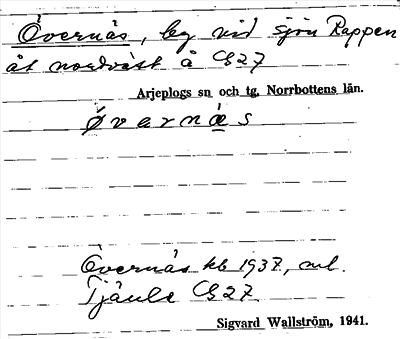 Övernäs, lzg vid sjön Rappen
åt nordväst å C927
Arjeplogs sn och tg, Norrbottens län.
Ø v a r n æ s
Övernäs kb 1937, enl.
Tjåule C927
Sigvard Wallström, 1941.